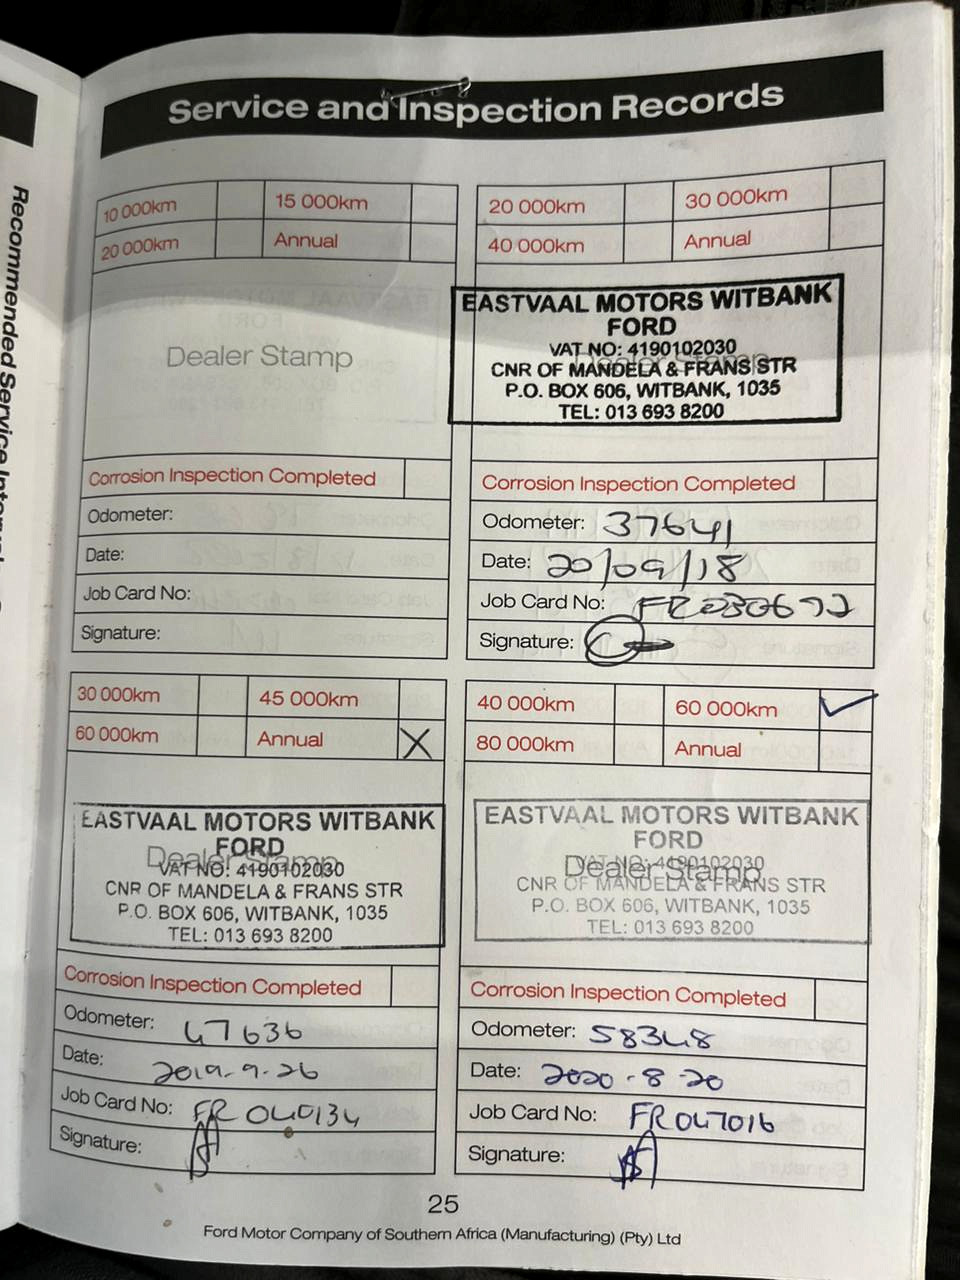 Recommended Service
Service and Inspection Records
10 000km 15 000km
20 000km Annual
Dealer Stamp
Corrosion Inspection Completed
Odometer:
Date:
Job Card No:
Signature:
20 000km 30 000km
40 000km Annual
EASTVAAL MOTORS WITBANK
FORD
VAT NO: 4190102030
CNR OF MANDELA & FRANS STR
P.O. BOX 606, WITBANK, 1035
TEL: 013 693 8200
Corrosion Inspection Completed
Odometer: 37641
Date: 20/09/18
Job Card No: FR030692
Signature:
30 000km 45 000km
60 000km Annual X
EASTVAAL MOTORS WITBANK
FORD
Dealer Stamp
VAT NO: 4190102030
CNR OF MANDELA & FRANS STR
P.O. BOX 606, WITBANK, 1035
TEL: 013 693 8200
Corrosion Inspection Completed
Odometer: 47636
Date: 2019-9-26
Job Card No: FR040134
Signature:
40 000km 60 000km ✓
80 000km Annual
EASTVAAL MOTORS WITBANK
FORD
VAT NO: 4190102030
Dealer Stamp
CNR OF MANDELA & FRANS STR
P.O. BOX 606, WITBANK, 1035
TEL: 013 693 8200
Corrosion Inspection Completed
Odometer: 58348
Date: 2020-8-20
Job Card No: FR047016
Signature:
25
Ford Motor Company of Southern Africa (Manufacturing) (Pty) Ltd